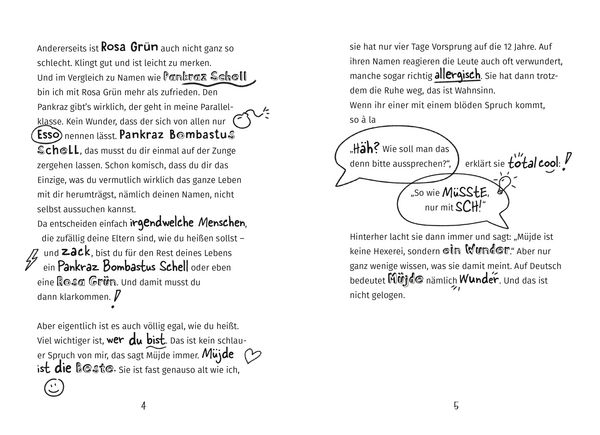 Andererseits ist Rosa Grün auch nicht ganz so
schlecht. Klingt gut und ist leicht zu merken.
Und im Vergleich zu Namen wie Pankraz Schell
bin ich mit Rosa Grün mehr als zufrieden. Den
Pankraz gibt's wirklich, der geht in meine Parallel-
klasse. Kein Wunder, dass der sich von allen nur
Esso nennen lässt. Pankraz Bombastus
Schell, das musst du dir einmal auf der Zunge
zergehen lassen. Schon komisch, dass du dir das
Einzige, was du vermutlich wirklich das ganze Leben
mit dir herumträgst, nämlich deinen Namen, nicht
selbst aussuchen kannst.
Da entscheiden einfach irgendwelche Menschen,
die zufällig deine Eltern sind, wie du heißen sollst –
und zack, bist du für den Rest deines Lebens
ein Pankraz Bombastus Schell oder eben
eine Rosa Grün. Und damit musst du
dann klarkommen.!
Aber eigentlich ist es auch völlig egal, wie du heißt.
Viel wichtiger ist, wer du bist. Das ist kein schlau-
er Spruch von mir, das sagt Müjde immer. Müjde
ist die Beste. Sie ist fast genauso alt wie ich,
4
sie hat nur vier Tage Vorsprung auf die 12 Jahre. Auf
ihren Namen reagieren die Leute auch oft verwundert,
manche sogar richtig allergisch. Sie hat dann trotz-
dem die Ruhe weg, das ist Wahnsinn.
Wenn ihr einer mit einem blöden Spruch kommt,
so à la
„Häh? Wie soll man das
denn bitte aussprechen?“, erklärt sie total cool:!
„So wie MÜSSTE,
nur mit SCH!“
Hinterher lacht sie dann immer und sagt: „Müjde ist
keine Hexerei, sondern ein Wunder.“ Aber nur
ganz wenige wissen, was sie damit meint. Auf Deutsch
bedeutet Müjde nämlich Wunder. Und das ist
nicht gelogen.
5